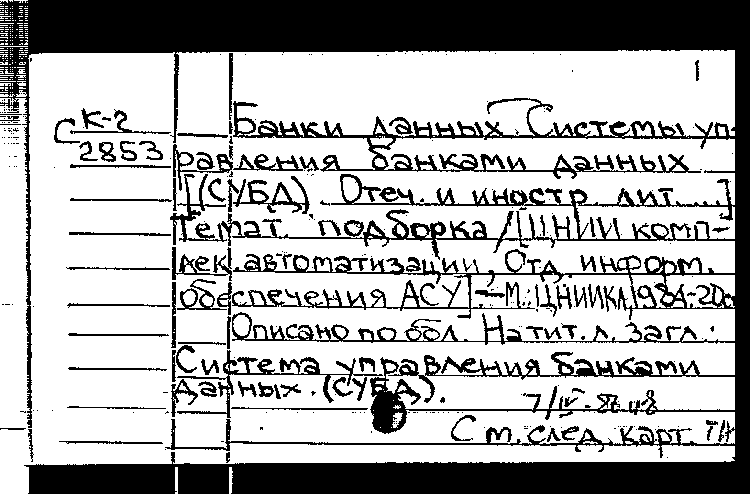 1
С К-2
2853
Банки данных. Системы уп-
равления банками данных
[(СУБД). Отеч. и иностр. лит. ...]
Темат. подборка / [ЦНИИ комп-
лек. автоматизации, Отд. информ.
обеспечения АСУ]. — М.: ЦНИИКА, 1984.-20с
Описано по обл. На тит. л. загл.:
Система управления банками
данных. (СУБД).
7/IV-86
См. след. карт.